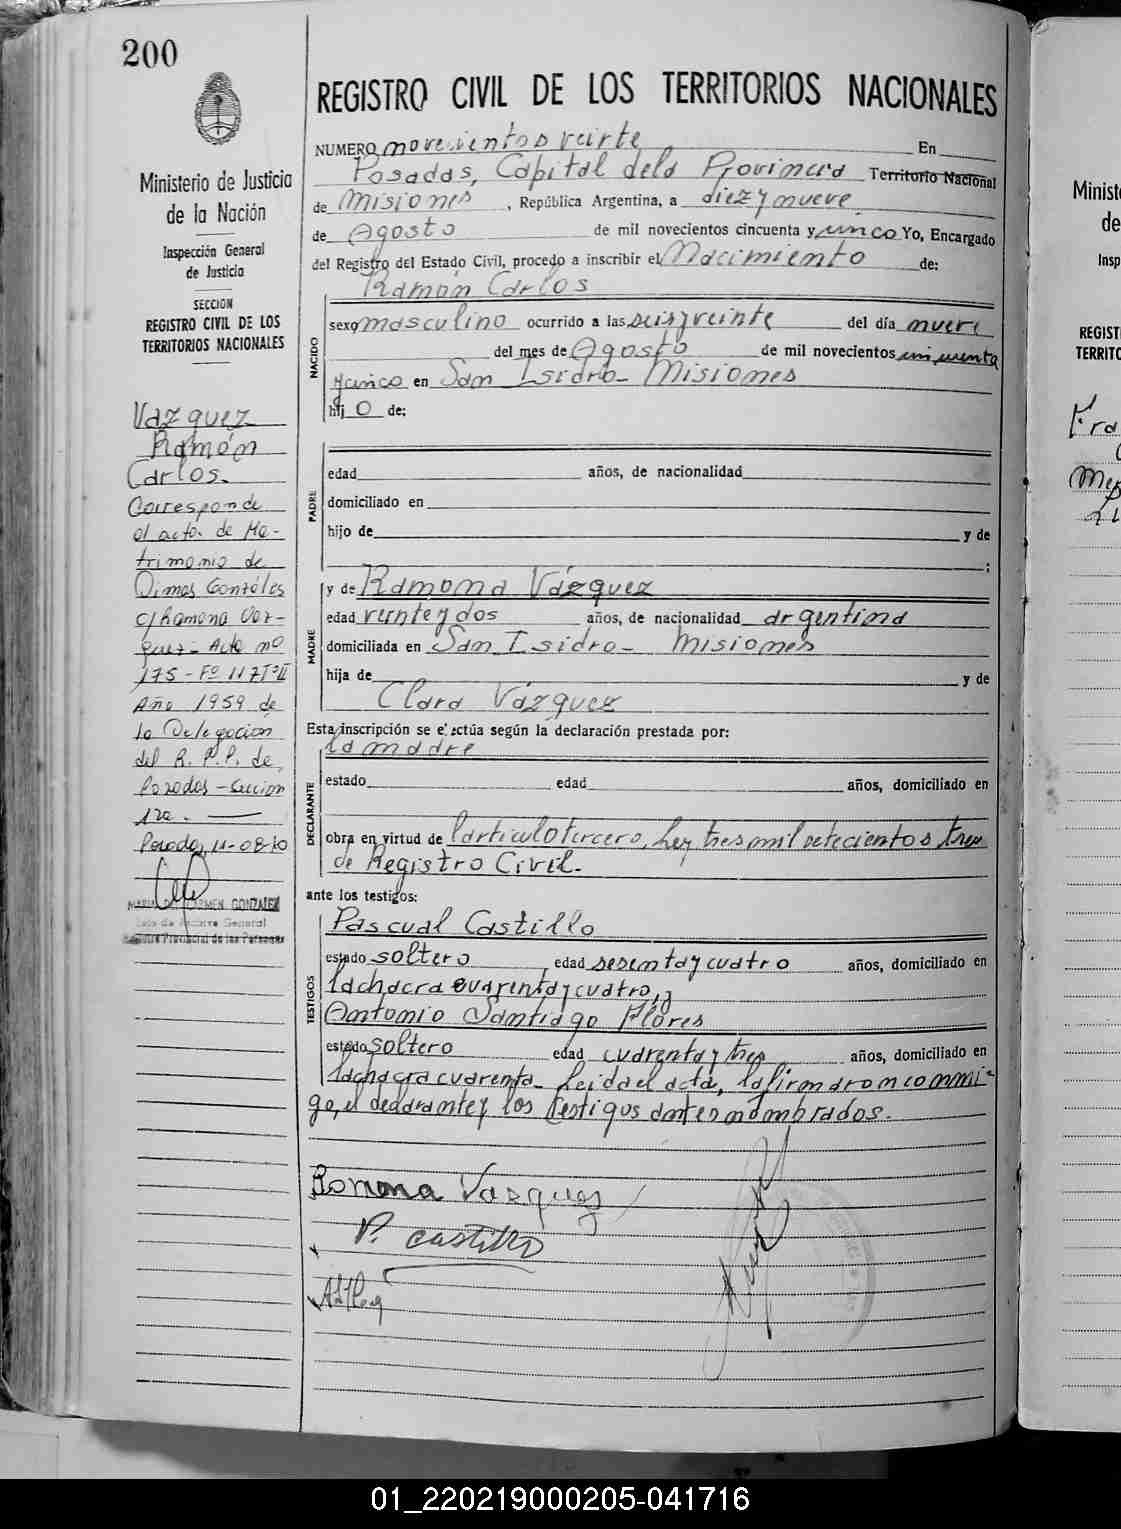 200
Ministerio de Justicia
de la Nación
Inspección General
de Justicia
SECCION
REGISTRO CIVIL DE LOS
TERRITORIOS NACIONALES
Vazquez
Ramón
Carlos.
Corresponde
al acta. de Ma-
trimonio de
Dimas Gonzáles
c/ Ramona Vaz-
quez - Acta nº
175 - Fº 117 Tº II
Año 1959 de
la Delegación
del R. P. P. de
Posadas - Sección
1ra.
Posadas, 11-08-
MARIA DEL CARMEN GONZALEZ
Jefa de Archivo General
Registro Provincial de las Personas
REGISTRO CIVIL DE LOS TERRITORIOS NACIONALES
NUMERO novecientos veinte En
Posadas, Capital dela Provincia Territorio Nacional
de Misiones, República Argentina, a diez y nueve
de Agosto de mil novecientos cincuenta y cinco Yo, Encargado
del Registro del Estado Civil, procedo a inscribir el Nacimiento de:
Ramón Carlos
NACIDO
sexo masculino ocurrido a las seis y veinte del día nueve
del mes de Agosto de mil novecientos cincuenta
y cinco en San Isidro - Misiones
hij o de:
PADRE
edad años, de nacionalidad
domiciliado en
hijo de y de
;
MADRE
y de Ramona Vázquez
edad veinte y dos años, de nacionalidad argentina
domiciliada en San Isidro - Misiones
hija de y de
Clara Vázquez
Esta inscripción se efectúa según la declaración prestada por:
la madre
DECLARANTE
estado edad años, domiciliado en
obra en virtud de l'articulo tercero, Ley tres mil setecientos tres
de Registro Civil.
ante los testigos:
TESTIGOS
Pascual Castillo
estado soltero edad sesenta y cuatro años, domiciliado en
la chacra cuarenta y cuatro, y
Antonio Santiago Flores
estado soltero edad cuarenta y tres años, domiciliado en
la chacra cuarenta - Leida el acta, la firmaron conmi-
go, el declarante y los testigos antes nombrados.
Ramona Vazquez
P. Castillo
Minist
de
Insp
REGIST
TERRITO
Fra
01_220219000205-041716